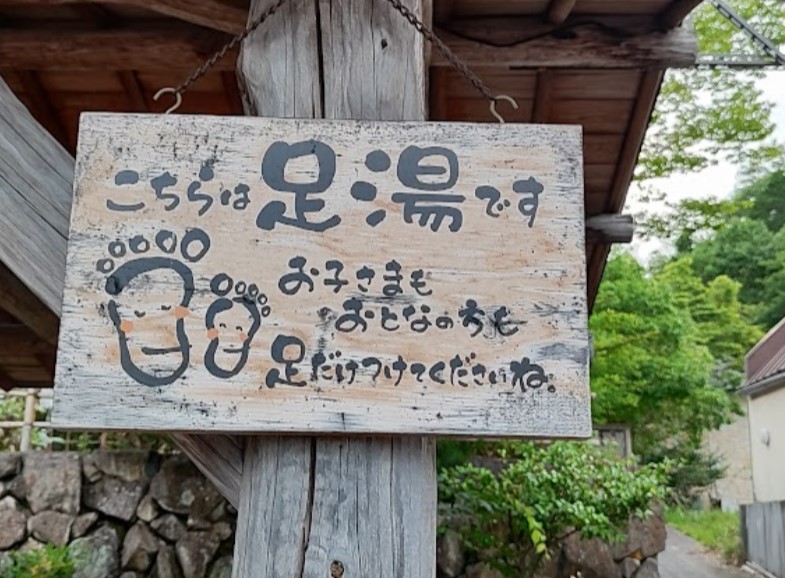 こちらは足湯です
お子さまも
おとなの方も
足だけつけてくださいね。